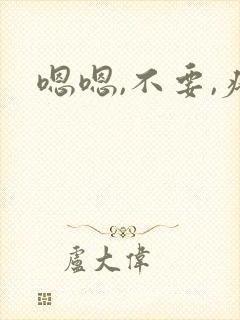 嗯嗯,不要,
盧大偉